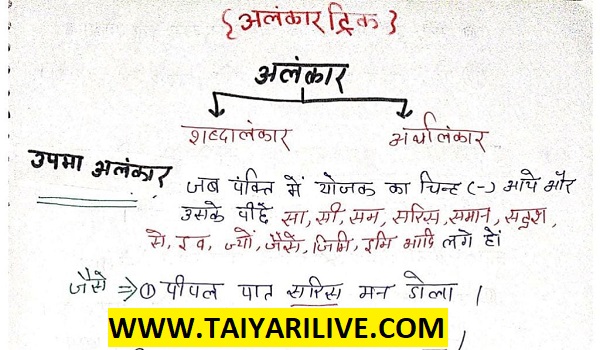 {अलंकार ट्रिक}
अलंकार
शब्दालंकार अर्थालंकार
उपमा अलंकार
जब पंक्ति में योजक का चिन्ह (-) आये और
उसके पीछे सा, सी, सम, सरिस, समान, सदृश,
से, इव, ज्यों, जैसे, जिमि, इमि आदि लगे हों।
जैसे ⇒ ① पीपल पात सरिस मन डोला।
WWW.TAIYARILIVE.COM